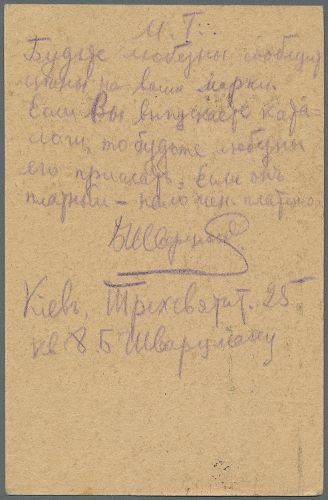 М. Г.
Будьте любезны сообщит
цены на ваши марки.
Если Вы выпускаете ката-
логи, то будьте любезны
его прислать, если онъ
платный – налож. платеж.
БШварцман.
Кіевъ, Трехсвятит. 25
кв 8 Б. Шварцману.